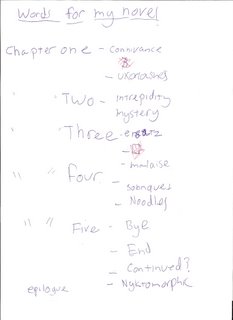 Words for my novel
Chapter one - Connivance
-
" Two - intrepidity
mystery
" Three -
-
- malaise
" " four - sobriques
- Noodles
" " Five - Bye
- End
- Continued?
epilogue - Nyktomorph